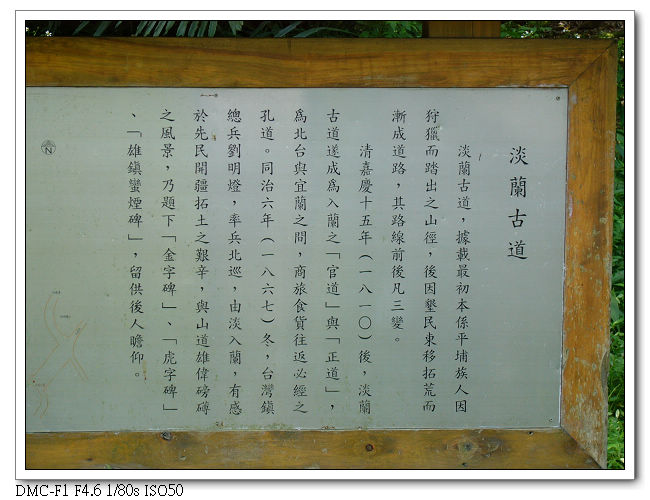 淡蘭古道
淡蘭古道，據載最初本係平埔族人因
狩獵而踏出之山徑，後因墾民東移拓荒而
漸成道路，其路線前後凡三變。
清嘉慶十五年（一八一〇）後，淡蘭
古道遂成為入蘭之「官道」與「正道」，
為北台與宜蘭之間，商旅食貨往返必經之
孔道。同治六年（一八六七）冬，台灣鎮
總兵劉明燈，率兵北巡，由淡入蘭，有感
於先民開疆拓土之艱辛，與山道雄偉磅礡
之風景，乃題下「金字碑」、「虎字碑」
、「雄鎮蠻煙碑」，留供後人瞻仰。
N
DMC-F1 F4.6 1/80s ISO50